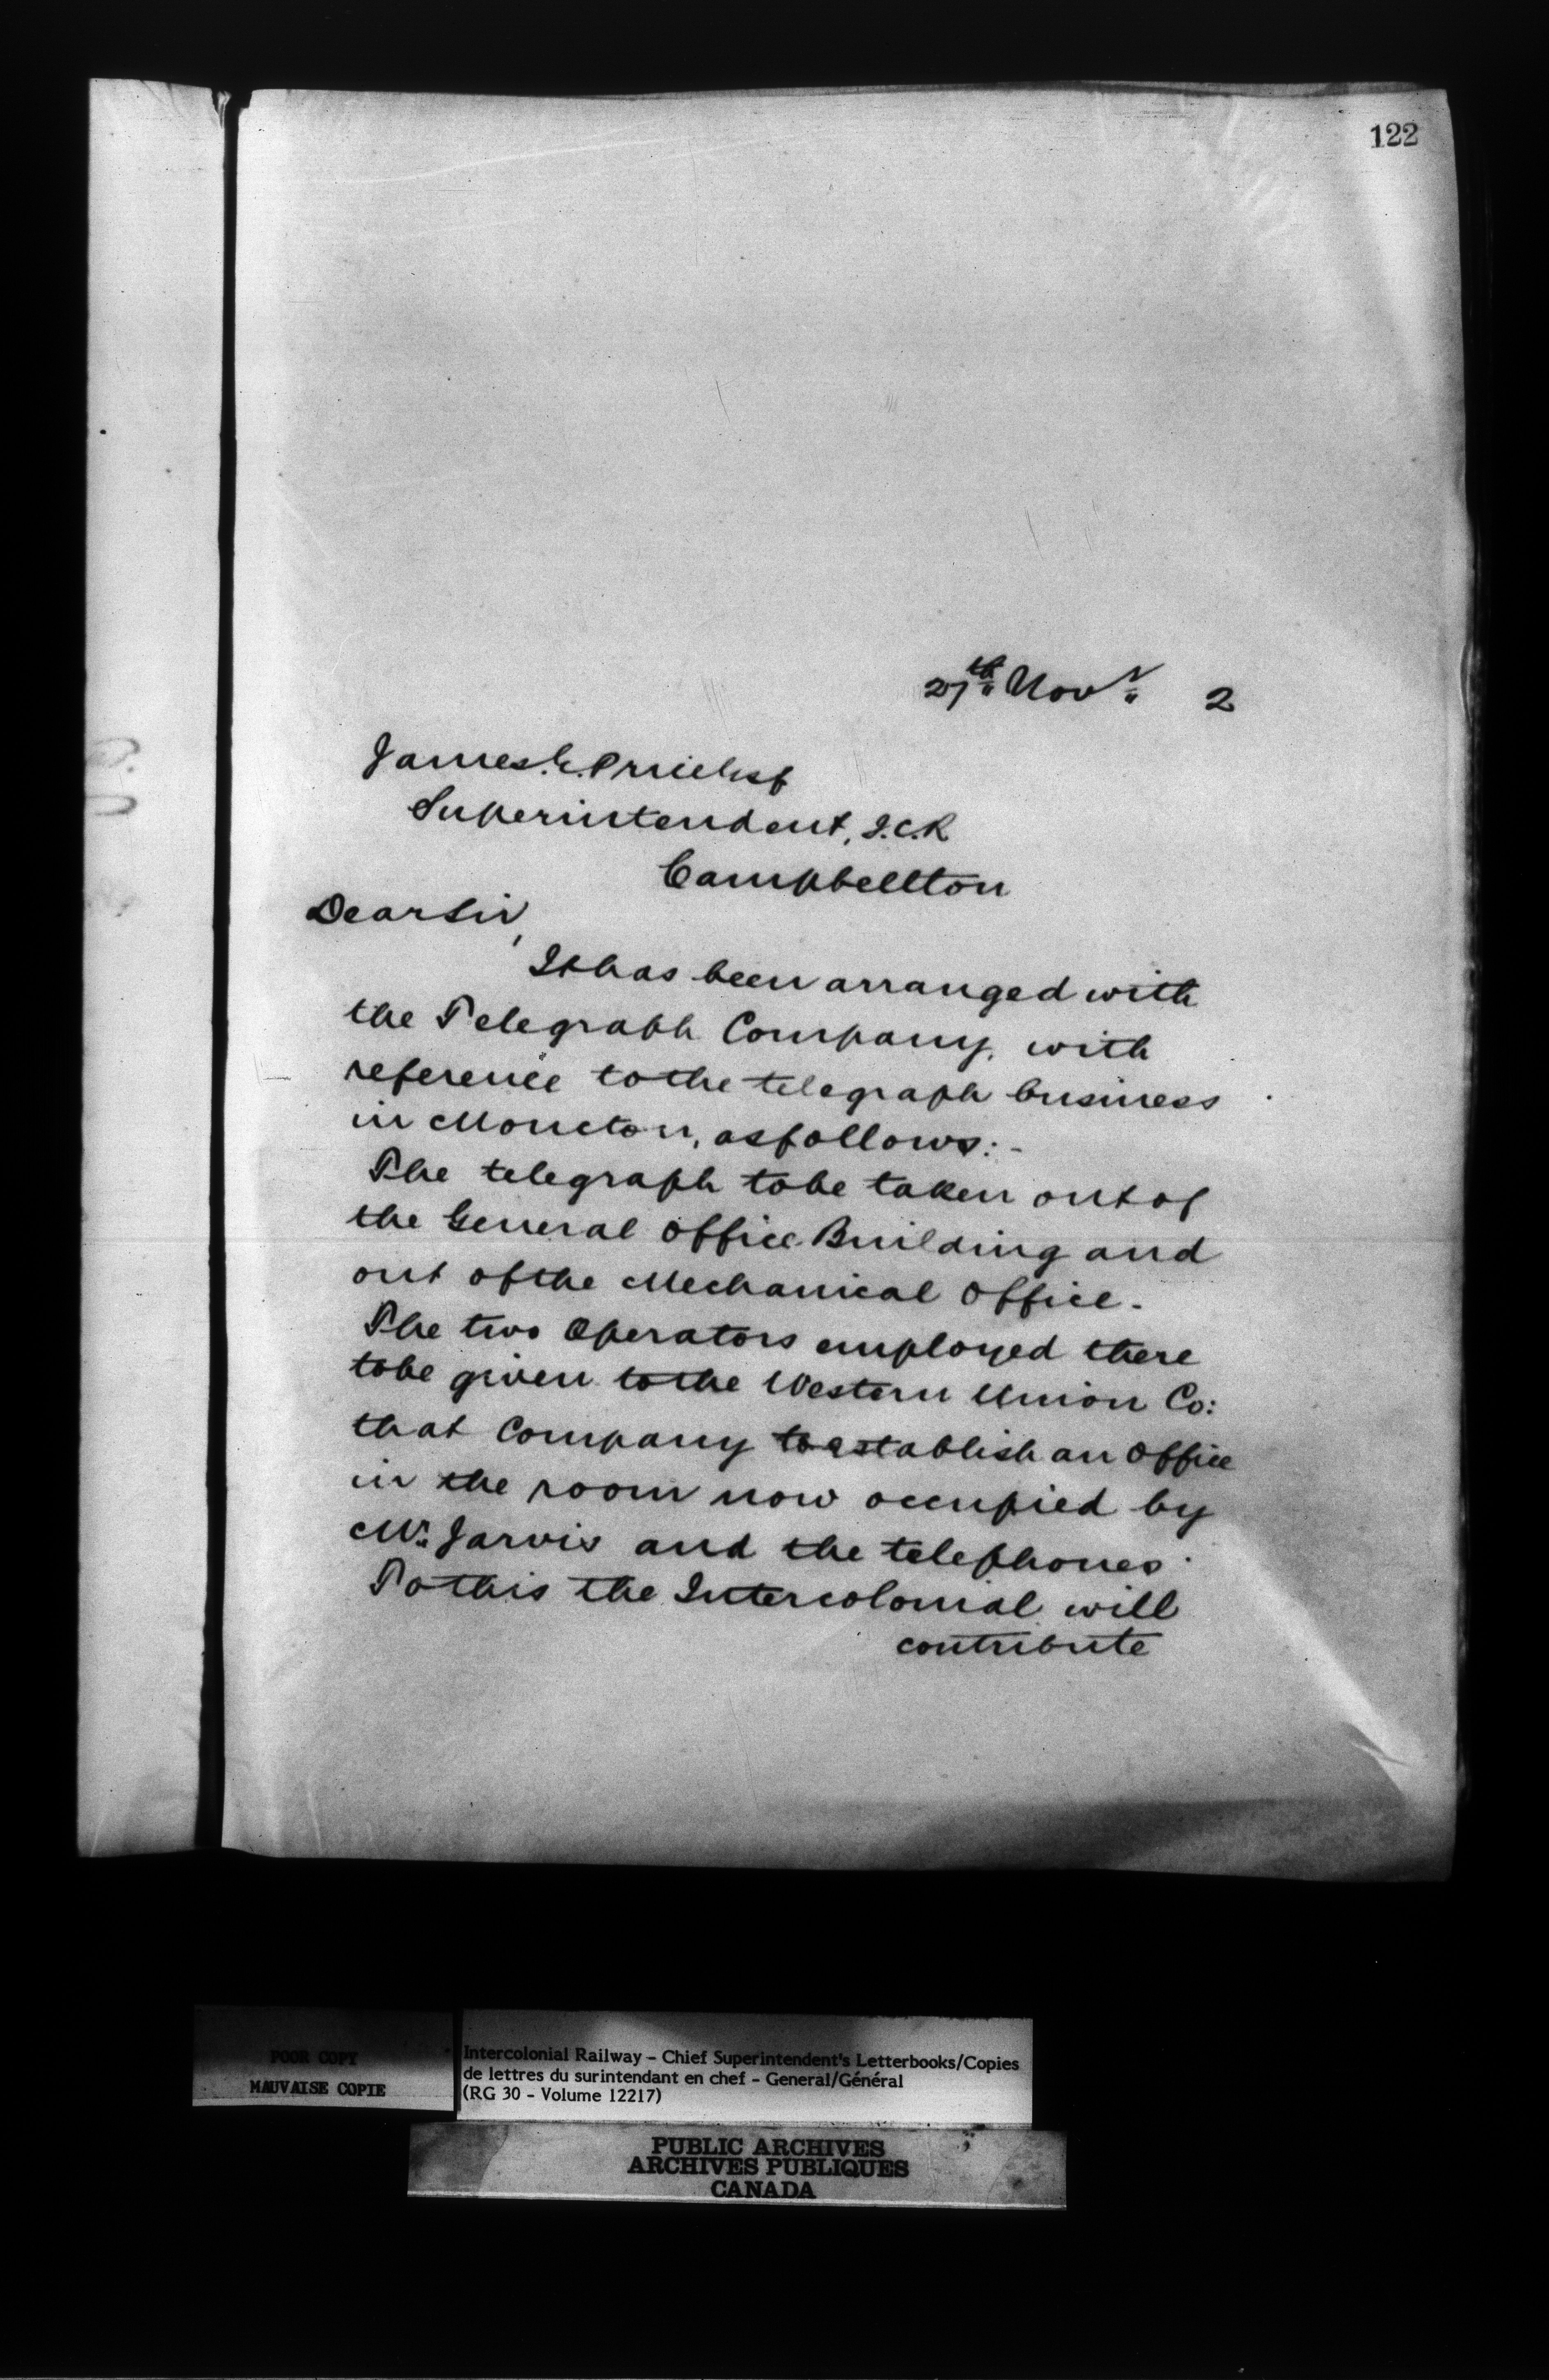 122
27th Novr 2
James. E. Price Esq
Superintendent, I.C.R
Campbellton
Dear Sir,
It has been arranged with
the Telegraph Company, with
reference to the telegraph business
in Moncton, as follows:-
The telegraph to be taken out of
the General Office Building and
out of the Mechanical Office.
The two Operators employed there
to be given to the Western Union Co:
that Company to establish an Office
in the room now occupied by
Mr. Jarvis and the telephones.
To this the Intercolonial will
contribute
POOR COPY
MAUVAISE COPIE
Intercolonial Railway - Chief Superintendent's Letterbooks/Copies
de lettres du surintendant en chef - General/Général
(RG 30 - Volume 12217)
PUBLIC ARCHIVES
ARCHIVES PUBLIQUES
CANADA